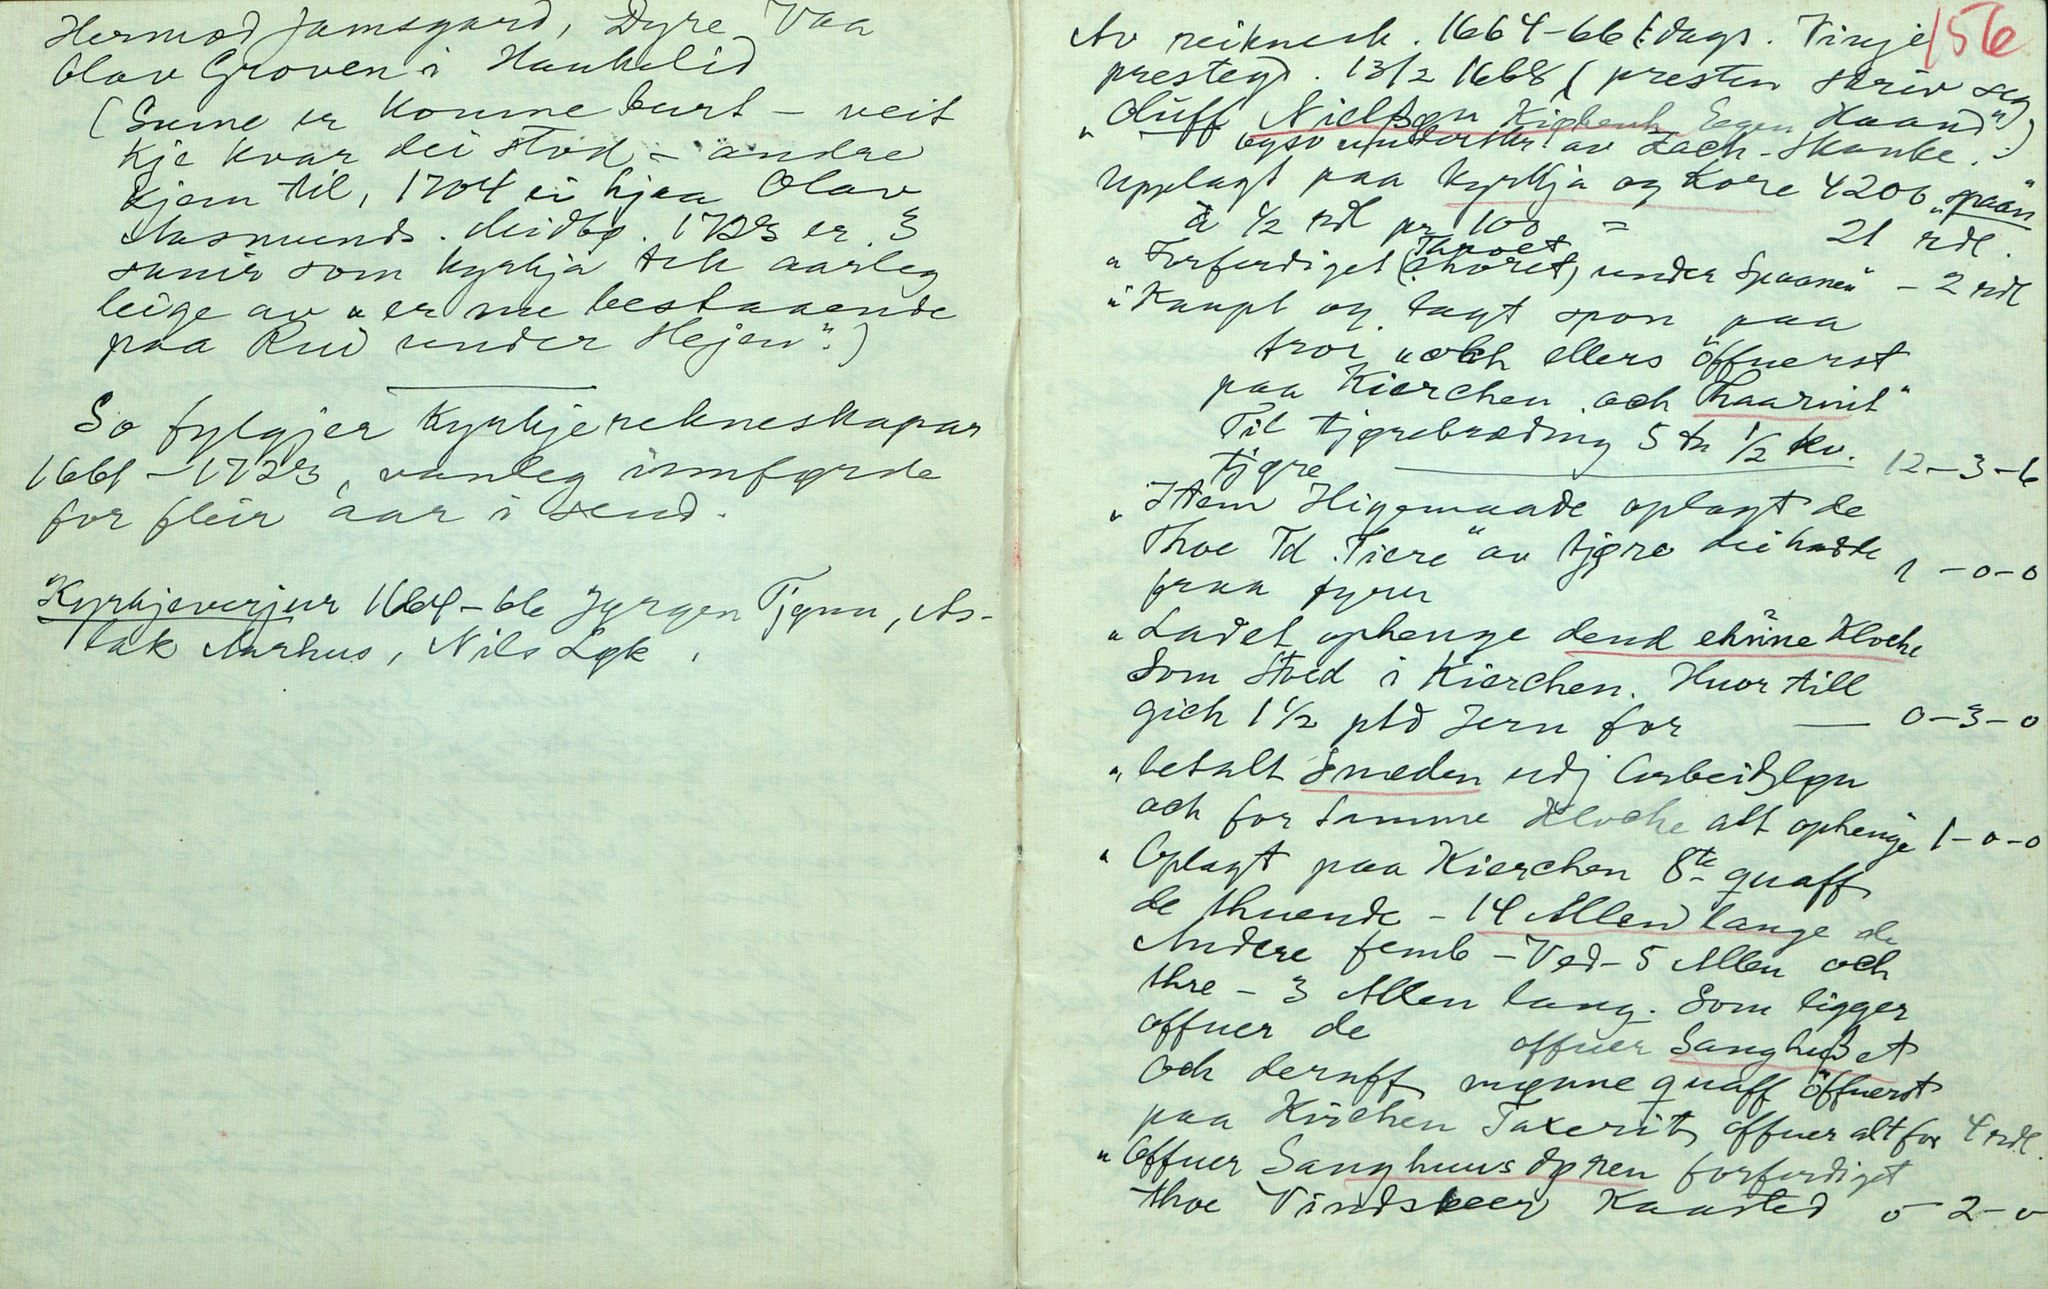 Hermod Jamsgard, Dyre Vaa
Olav Groven i Haukelid
(Sume er komne burt – veit
kje kvar dei stod – andre
kjem til, 1704 ei hjaa Olav
Aasmunds. Meidbø. 1723 er 3
som kyrkja tek aarleg
leige av „er nu bestaaende
paa Rui under Hejen".)
So fylgjer kyrkjerekneskapar
1661–1723, vanleg innførde
for fleir aar i send.
Kyrkjeverjur 1664–66 Jørgen Tjønn, As-
lak Aarhus, Nils Løk.
Av reiknesk. 1664–66 (: dags. Vinje 156
prestegd. 13/2 1668 (presten skriv seg
„Oluff Nielssøn Kiøbenh Egen Haand")
ogso underskr. av Zach. Skanke.:)
Upplagt paa kyrkja og kore 4200 „spaan"
à ½ rdl pr 100 = 21 rdl.
„Forferdiget Throet (choret) under Spaanen" – 2 rdl
„Kaupt og lagt spon paa
troi „och ellers öffuerst
paa Kierchen och Thaarnit"
Til tjørebræding 5 tn ½ kv.
tjøre 12–3–6
„Item Ligemaade oplagt de
Thoe Td. Tiere" av tjøre dei hadde
fraa fyrr 1–0–0
„Ladet ophenge dend einne Kloche
Som Stoed i Kierchen. Huor till
gich 1½ pbd Jern for 0–3–0
„betalt Smeden udj Arbeidzløn
och for Samme Kloche alt ophenge 1–0–0
„Oplagt paa Kierchen 8te quaff
de thuende – 14 Allen lange de
Andere femb – Ved – 5 Allen och
thre – 3 Allen lang. Som ligger
offuer de offuer Sanghuset
Och deruff mønne quaff öffuerst
paa Kirchen Taxerit, offuer alt for 4 rdl.
„Offuer Sanghuus døren forferdiget
thoe Vindskeer Kaasted 0–2–0